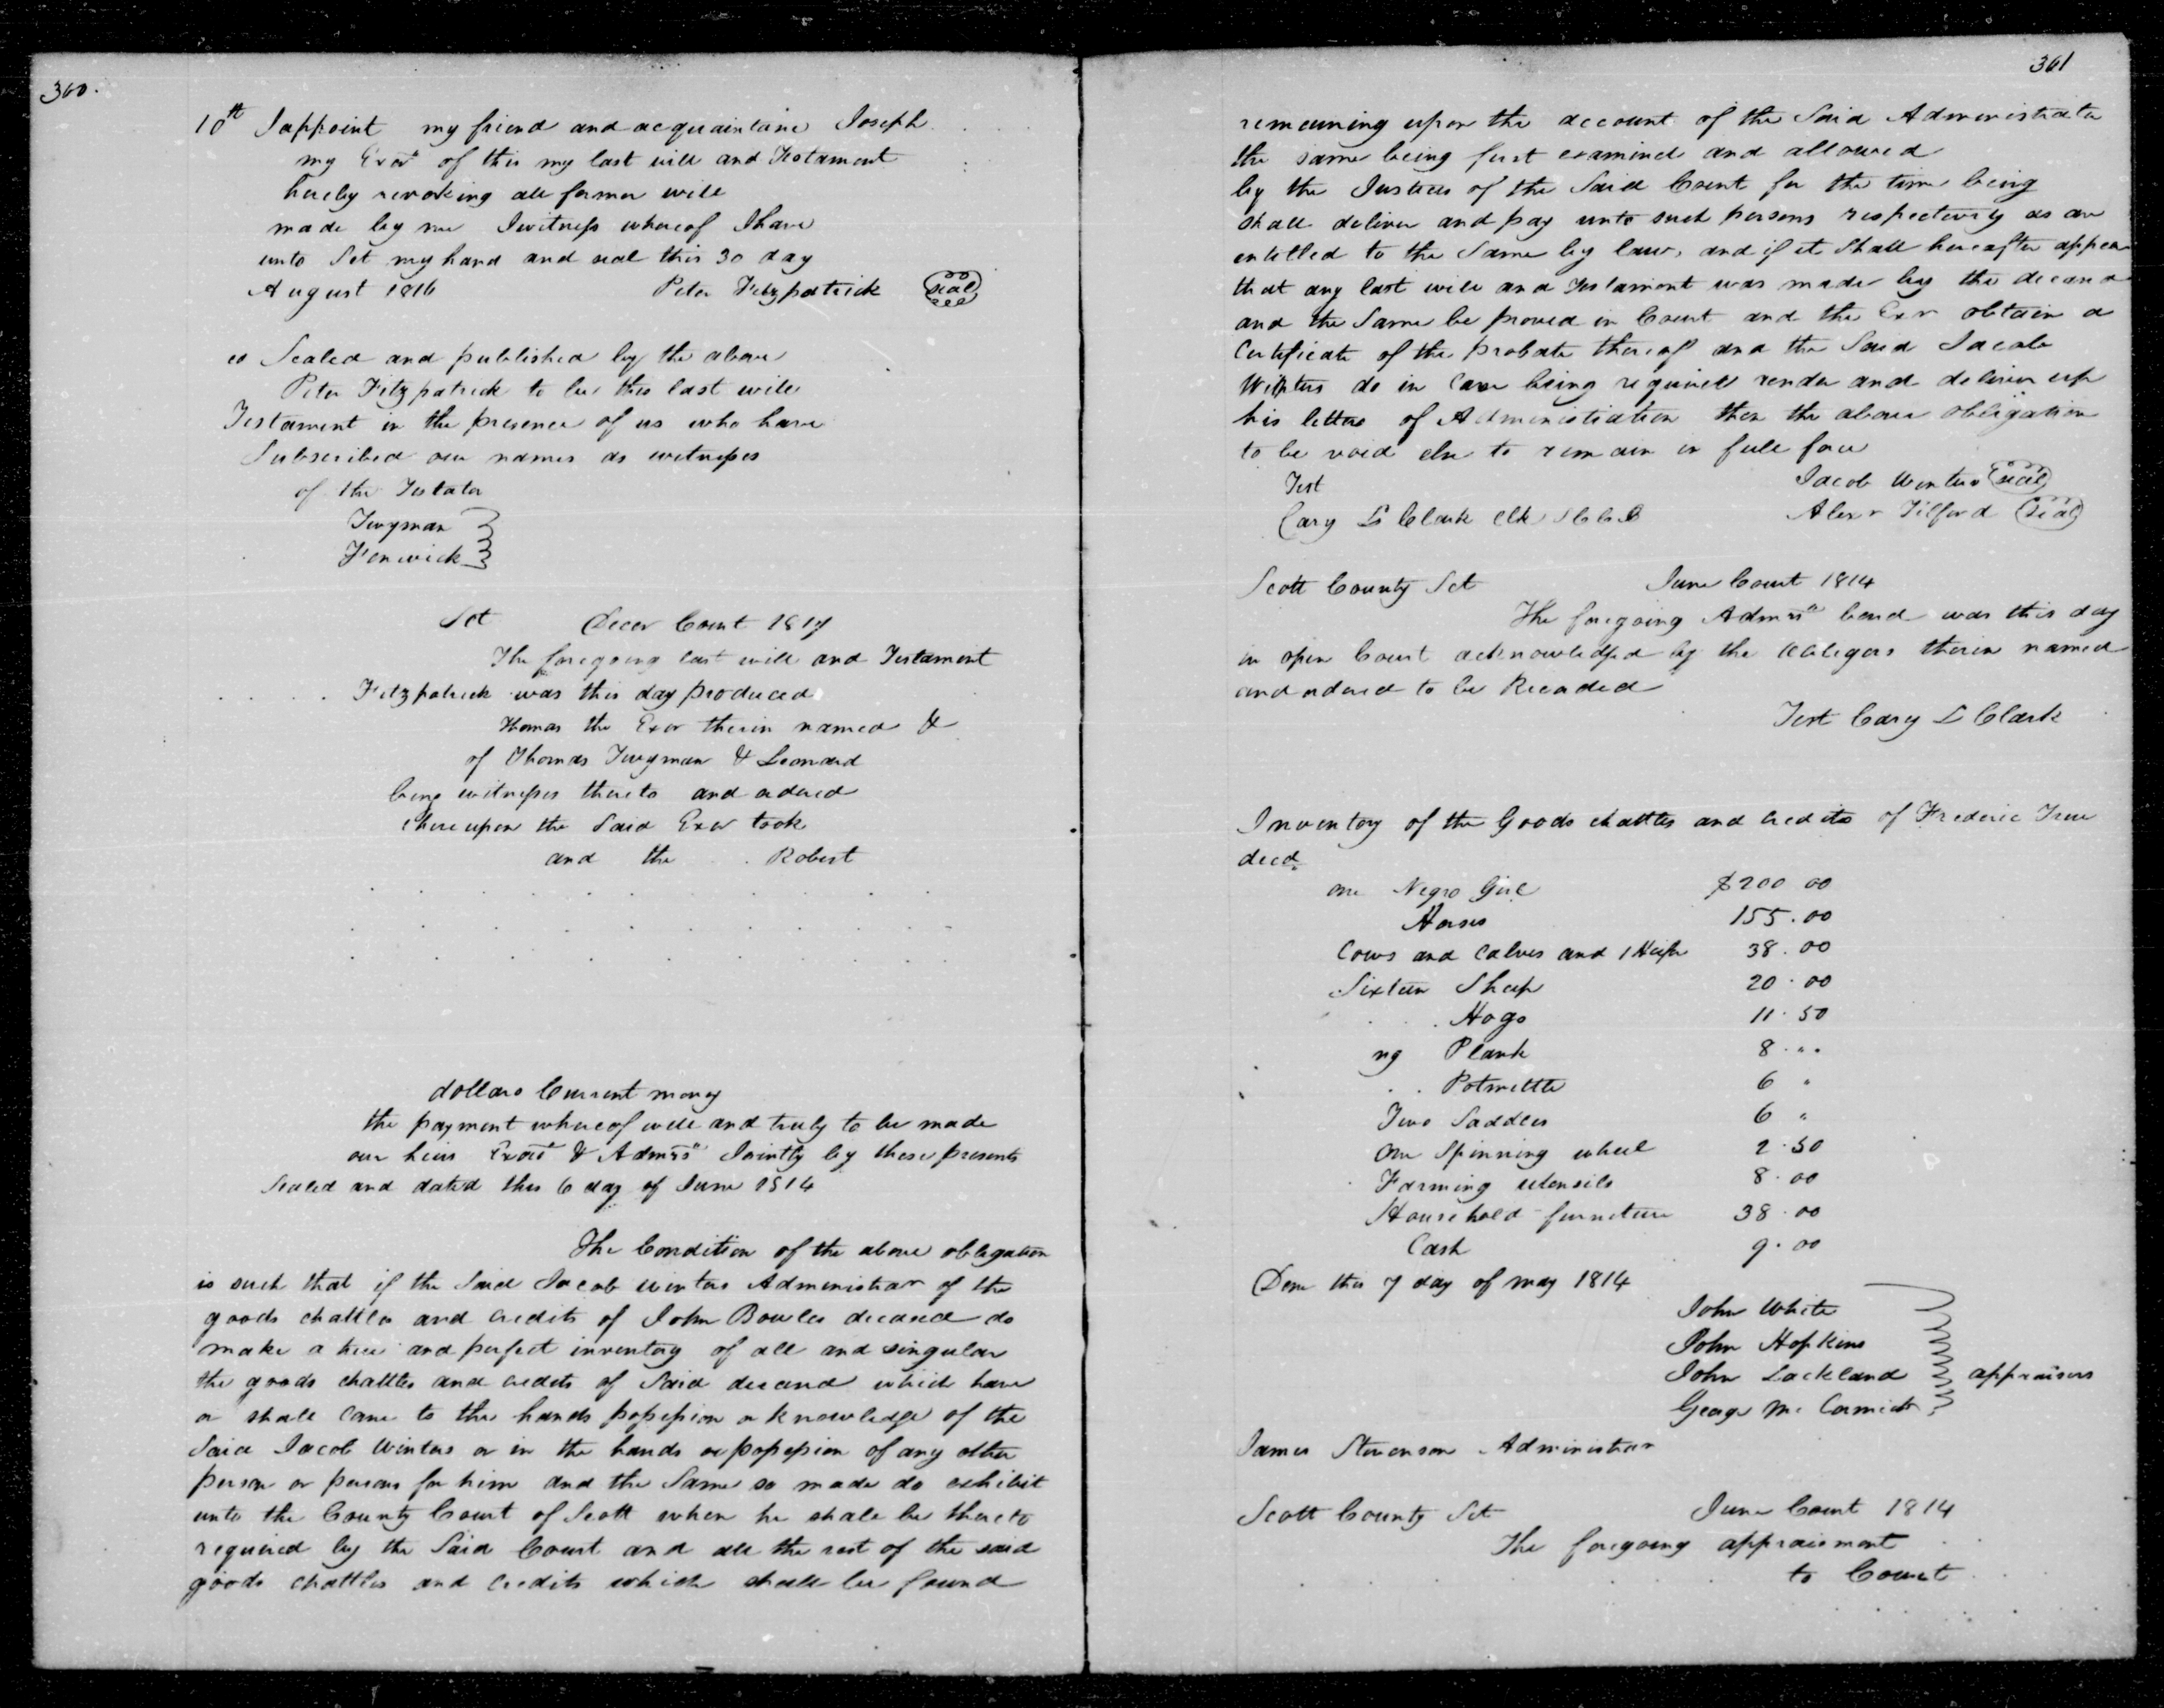 360.
10th I appoint my friend and acquaintance Joseph
my Exor of this my last will and Testament
hereby revoking all former will
made by me I witness whereof I have
unto Set my hand and seal this 30 day
August 1816 Peter Fitzpatrick seal
ed Sealed and published by the above
Peter Fitzpatrick to be this last will
Testament in the presence of us who have
Subscribed our names as witnesses
of the Testator
Twyman
Fenwick
Sct Decer Court 1817
The foregoing last will and Testament
Fitzpatrick was this day produced
Thomas the Exor therein named &
of Thomas Twyman & Leonard
being witnesses thereto and ordered
thereupon the Said Exor took
and the Robert
dollars Current money
the payment whereof well and truly to be made
our heirs Exors & Admrs Jointly by these presents
Sealed and dated this 6 day of June 1814
The Condition of the above obligation
is such that if the Said Jacob Winters Administrar of the
goods chattles and credits of John Bowles deceased do
make a true and perfect inventory of all and singular
the goods chattles and credits of Said deceand which have
or shall came to the hands possession or knowledge of the
Said Jacob Winters or in the hands or possession of any other
person or persons for him and the Same so made do exhibit
unto the County Court of Scott when he shall be thereto
required by the Said Court and all the rest of the said
goods chattles and credits which shall be found
361
remaining upon the account of the Said Administrator
the same being first examined and allowed
by the Justices of the Said Court for the time being
shall deliver and pay unto such persons respectively as are
entitled to the Same by law, and if it Shall hereafter appear
that any last will and Testament was made by the deceand
and the Same be proved in Court and the Exr obtain a
Certificate of the probate thereof and the Said Jacob
Winters do in Case being required render and deliver up
his letters of Administration then the above obligation
to be void else to remain in full force
Test Jacob Winters seal
Cary L Clark Clk SCC Alexr Tilford seal
Scott County Sct June Court 1814
The foregoing Admrs bond was this day
in open Court acknowledged by the Obligors therein named
and ordered to be Recorded
Test Cary L Clark
Inventory of the Goods chattles and credits of Frederic True
decd.
one Negro Girl $200 00
Horses 155.00
Cows and Calves and 1 Heifer 38.00
Sixteen Sheep 20.00
Hogs 11.50
ng Plank 8 . "
Potmettle 6 "
Two Saddles 6 "
One Spinning wheel 2.50
Farming utensils 8.00
Household furneture 38.00
Cash 9.00
Done this 7 day of may 1814
John White
John Hopkins
John Lackland appraisers
George Mc Cormick
James Stevenson Administrar
Scott County Sct June Court 1814
The foregoing appraisment
to Court